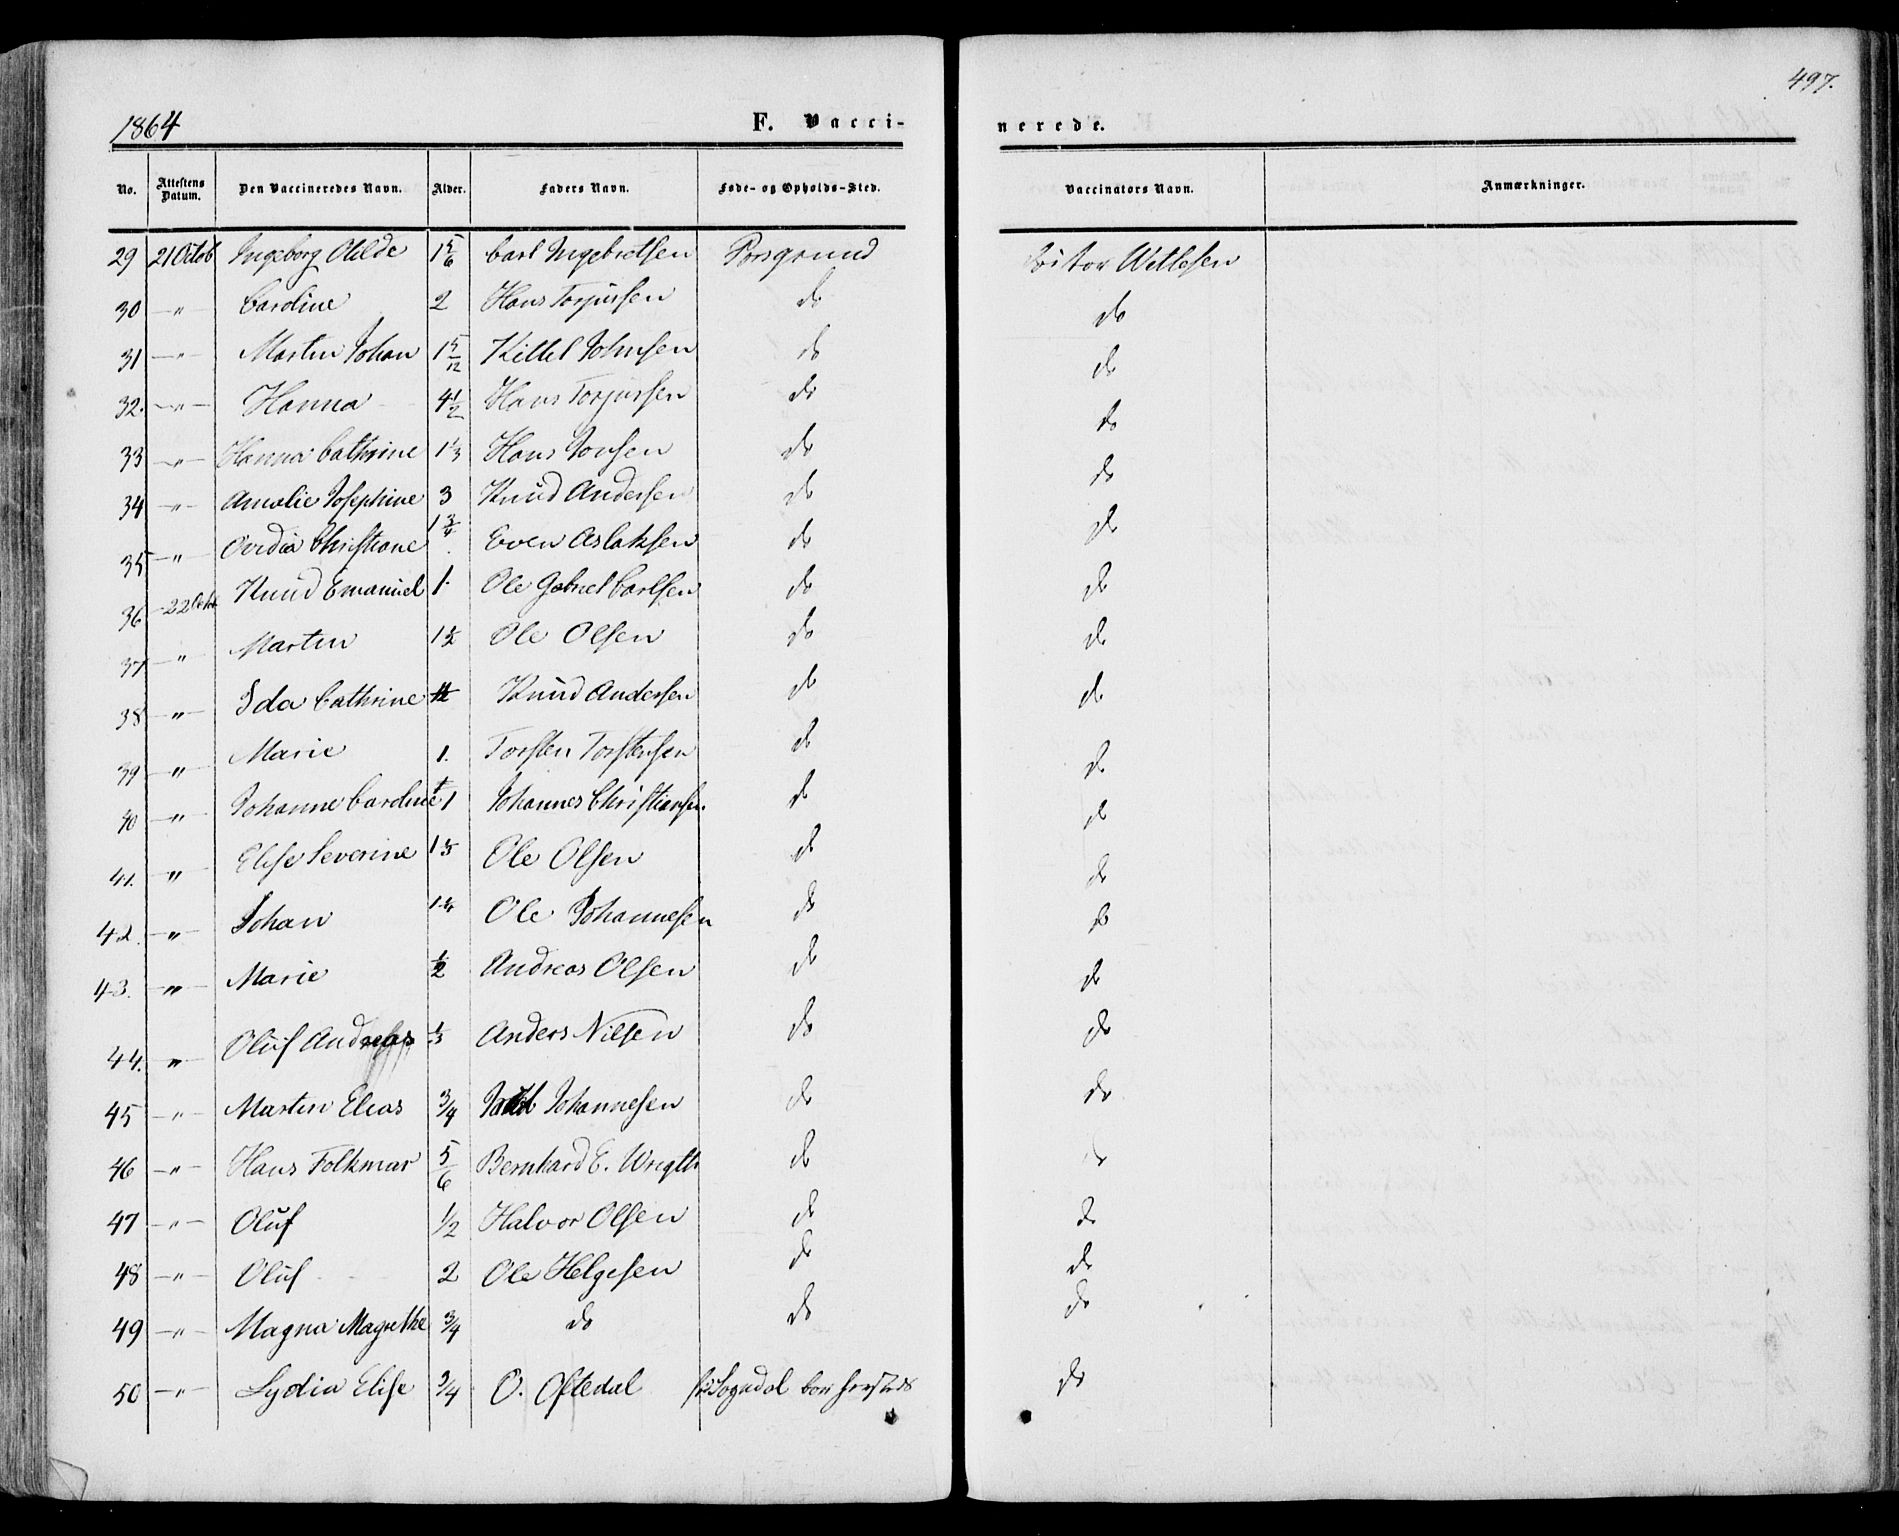 1864 F. Vacci- nerede. 497.
No. Attestens Datum. Den Vaccineredes Navn. Alder. Faders Navn. Føde- og Opholds-Sted. Vaccinators Navn. Anmærkninger.
29 21 Octob Ingeborg 1 5/6 Carl Ingebretsen Porsgrund
30 -"- Cardine 2 Hans Torjussen do do
31 -"- Martin Johan 1 5/12 Kittel Johnsen do do
32. -"- Hanna 4 1/2 Hans Torjussen do do
33 -"- Hanna Cathrine 1 1/3 Hans Jonsen do do
34 -"- Amalie Josephine 3 Knud Andersen do do
35 -"- Ovidia Christiane 1 3/4 Even Aslaksen do do
36 -22 Knud Emanuel 1. Ole Gabriel Carlsen do do
37 " Martin 1 1/2 Ole Olsen do do
38 -"- Ida Cathrine Knud Andersen do do
39 -"- Marie 1. Torsten Torstensen do do
40 -"- Johanne Cardine 1 Johannes Christiansen do do
41. -"- Elise Severine 1 1/3 Ole Olsen do do
42. -"- Johan 1 1/4 Ole Johannesen do do
43. -"- Marie 1/2 Andreas Olsen do do
44. " Oluf Andreas 1/3 Anders Nilsen do do
45 -"- Martin Elias 3/4 Johannesen do do
46 -"- Hans Folkmar 5/6 Bernhard E. Wrigth do do
47 -"- Oluf 1/2 Halvor Olsen do do
48 -"- Oluf 2 Ole Helgesen do do
49 -"- Magna Magrethe 3/4 do do do
50 -"- Lydia Elise 3/4 O. Oftedal Sogndal do